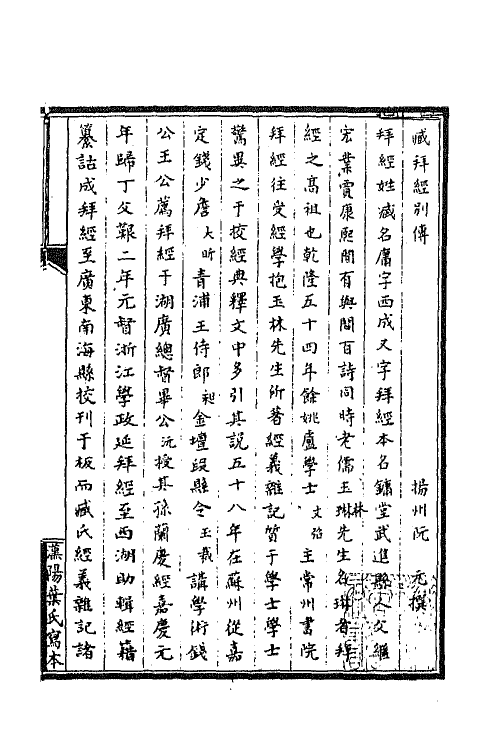 臧拜經別傳
揚州阮 元撰
拜經姓臧名庸字西成又字拜經本名鏞堂武進縣人父繼
宏業賈康熙間有與閻百詩同時老儒玉琳林先生名琳者拜
經之高祖也乾隆五十四年餘姚盧學士文弨主常州書院
拜經往受經學抱玉林先生所著經義雜記質于學士學士
驚異之于校經典釋文中多引其說五十八年在蘇州從嘉
定錢少詹大昕青浦王侍郎昶金壇段縣令玉裁講學術錢
公王公薦拜經于湖廣總督畢公沅授其孫蘭慶經嘉慶元
年歸丁父艱二年元督浙江學政延拜經至西湖助輯經籍
纂詁成拜經至廣東南海縣校刊于板而臧氏經義雜記諸
漢陽葉氏寫本